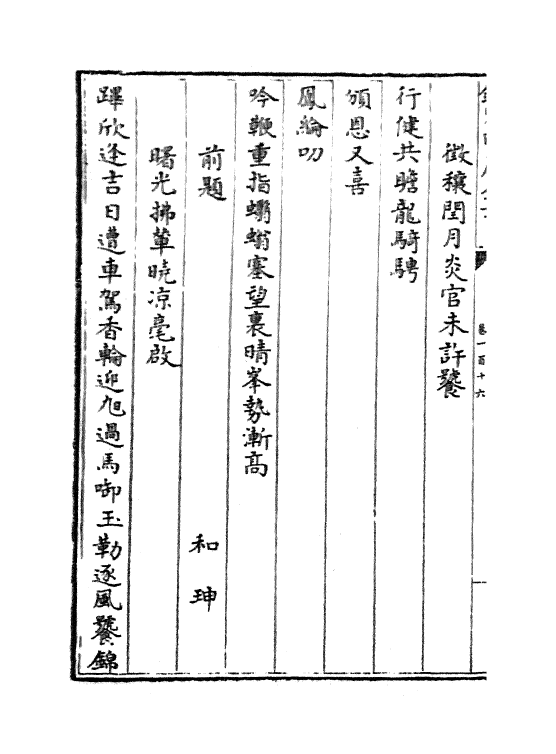 徴穰閏月炎官未許饕
行健共瞻龍騎騁
頒恩又喜
鳳綸叨
吟鞭重指蠮螉塞望裏晴峯勢漸高
前題
和珅
曙光拂葦曉凉毫啟
蹕欣逢吉日遭車駕香輪迎旭過馬啣玉勒逐風饕錦
卷一百十六